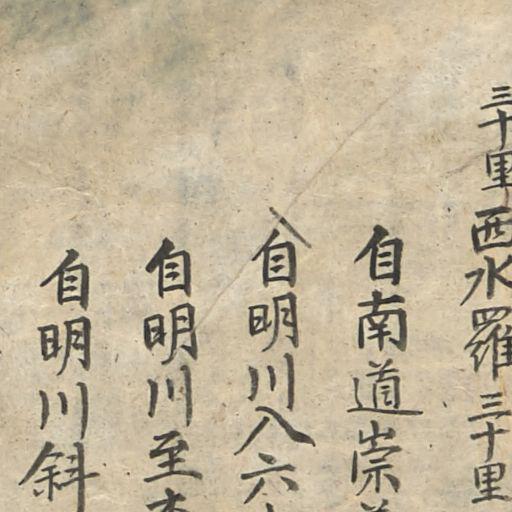 三十里西水羅三十里
自南道崇
自明川八六
自明川至
自明川斜